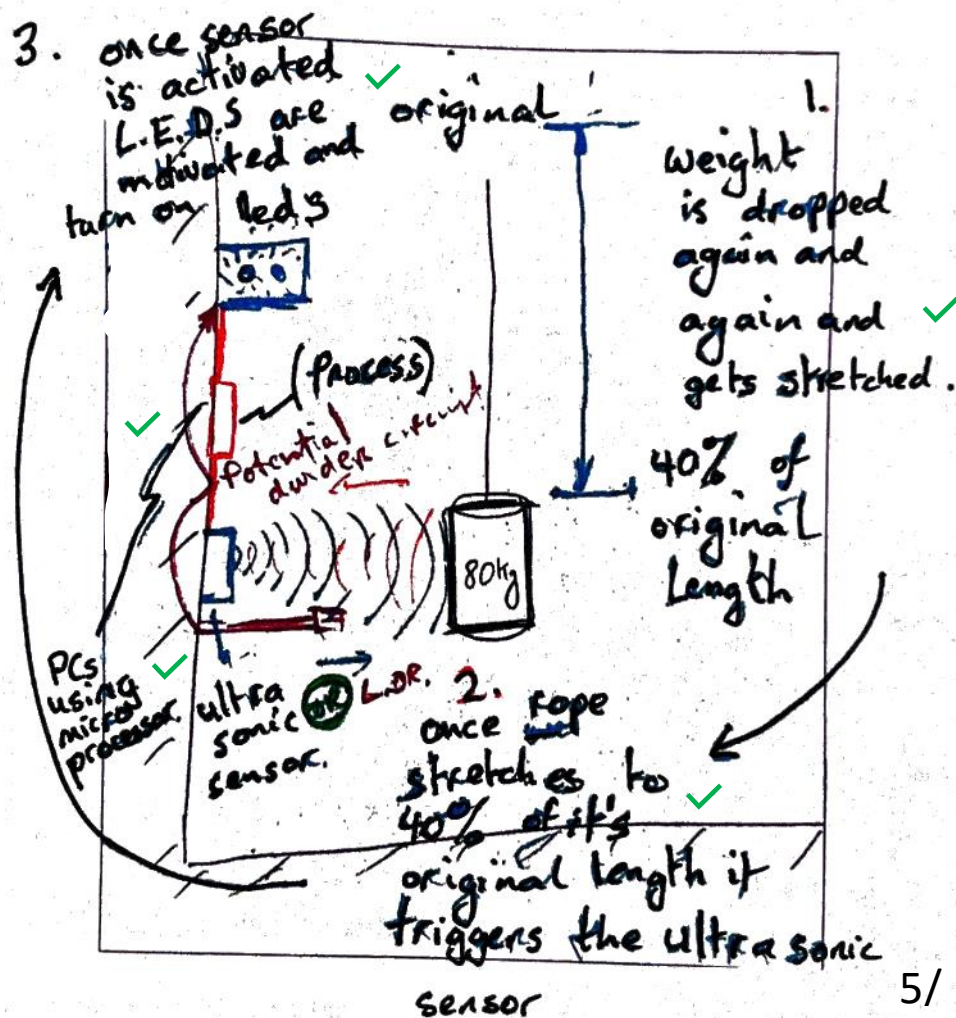 3. once sensor
is activated
L.E.D.S are
motivated and
turn on
leds
original
1.
weight
is dropped
again and
again and
gets stretched.
40% of
original
Length
(Process)
Potential
divider circuit
80kg
PCs
using
micro
processor.
ultra
sonic
sensor.
OR
L.DR.
2.
once rope
stretches to
40% of it's
original length it
triggers the ultra sonic
sensor
5/